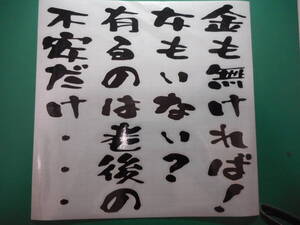 金も無ければ!
女もいない?
有るのは老後の
不安だけ・・・